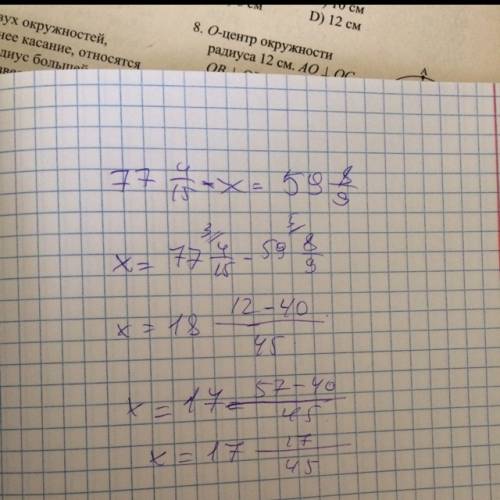 вух окружностей,
нее касание, относятся
диус большей
D) 12 см
8. О-центр окружности
радиуса 12 см. AO ⊥ OC
A
77 4/15 - x = 59 8/9
x = 77 4/15 - 59 8/9
x = 18 12-40/45
x = 17 57-40/45
x = 17 17/45